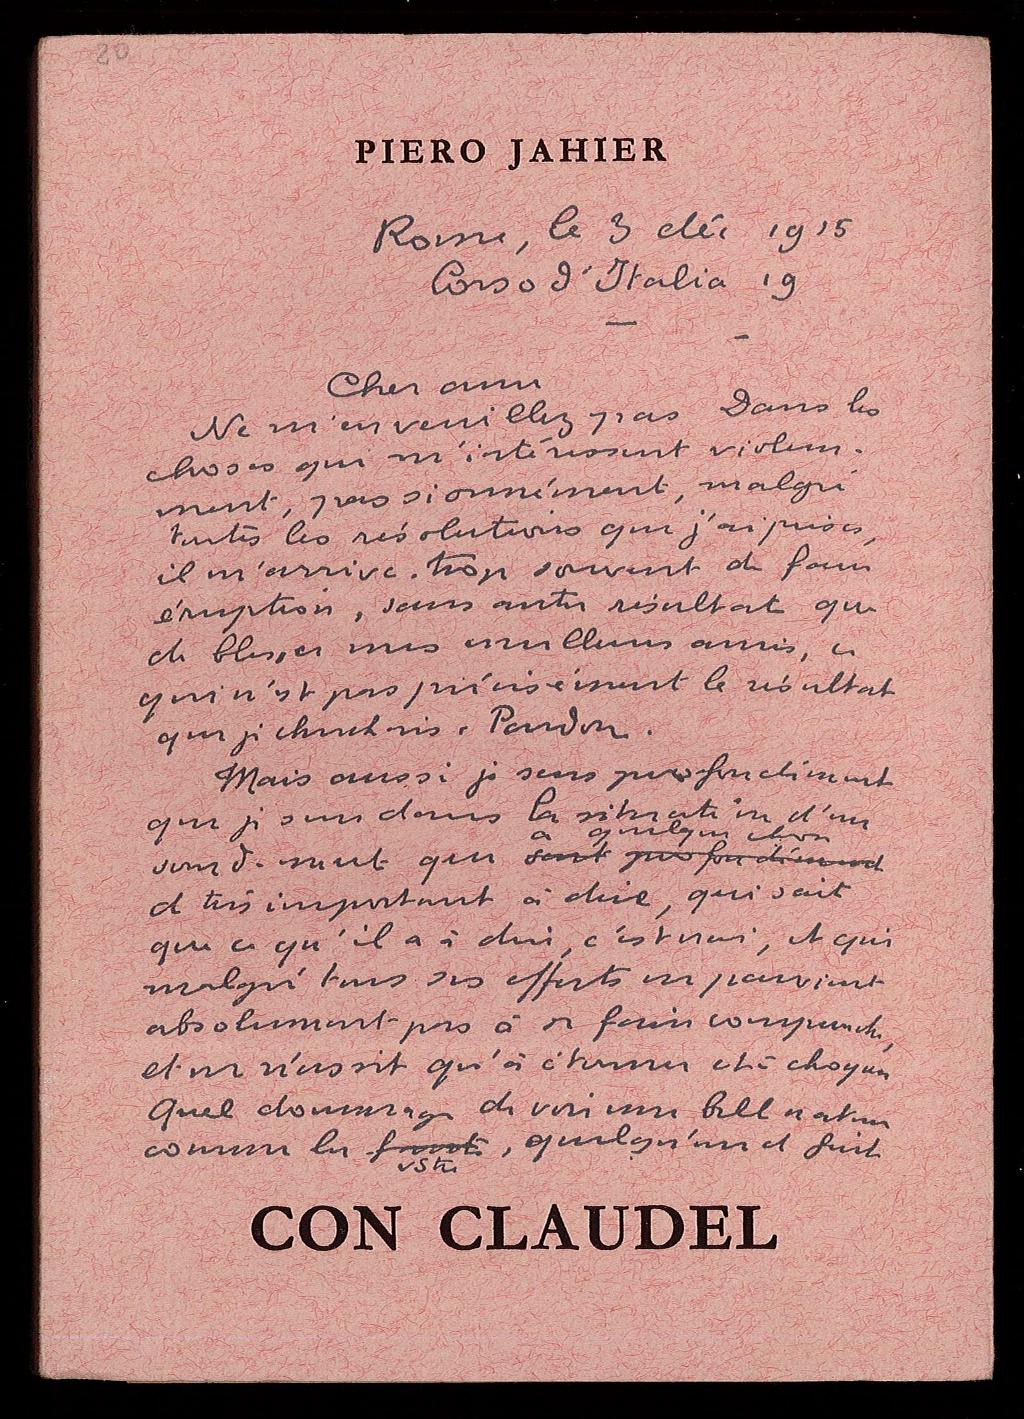 20
PIERO JAHIER
Rome, le 3 déc 1915
Corso d'Italia 19
Cher ami
Ne m'en veuillez pas Dans les
choses qui m'intéressent violem-
ment, passionnément, malgré
toutes les résolutions que j'ai prises,
il m'arrive trop souvent de faire
éruption, sans autre résultat que
de blesser mes meilleurs amis, ce
qui n'est pas précisément le résultat
que je cherchais. Pardon.
Mais aussi je sens profondément
que je suis dans la situation d'un
a quelque chose
sourd-muet que sent profondément
de très important à dire, qui sait
que ce qu'il a à dire, c'est vrai, et qui
malgré tous ses efforts ne parvient
absolument pas à se faire comprendre,
et ne réussit qu'à étonner et à choquer
Quel dommage de voir une belle nature
comme la , quelqu'un et fait
vôtre
CON CLAUDEL